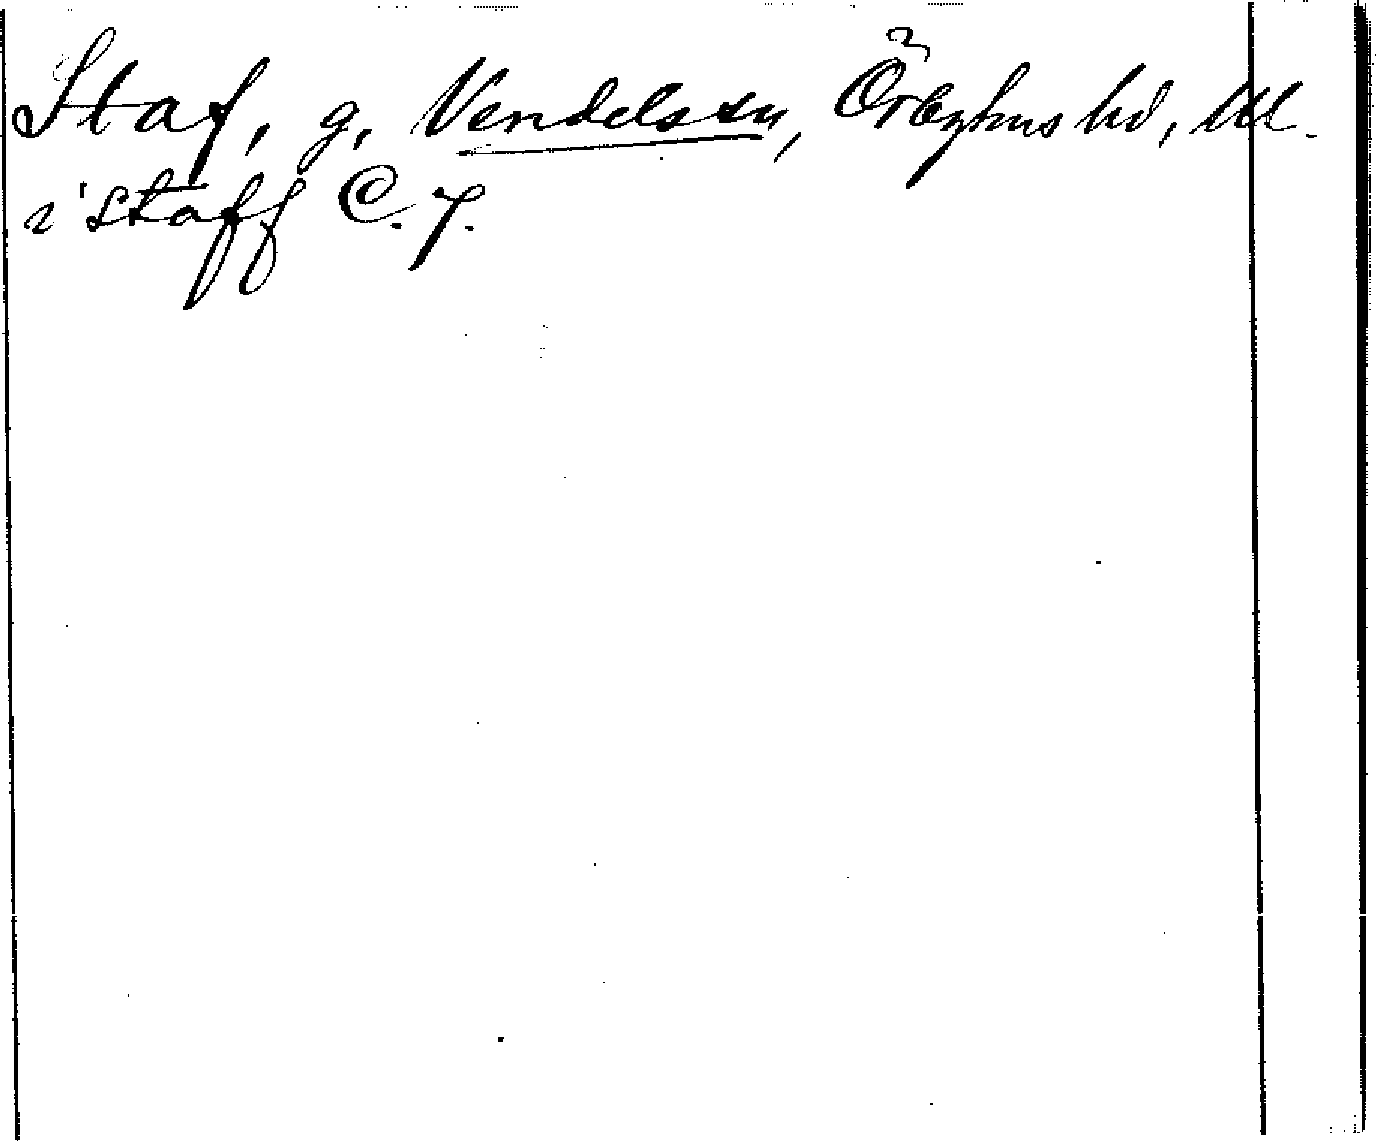 Staf, g, Vendels sn, Örbyhus hd, Ul.
i staff C. 7.